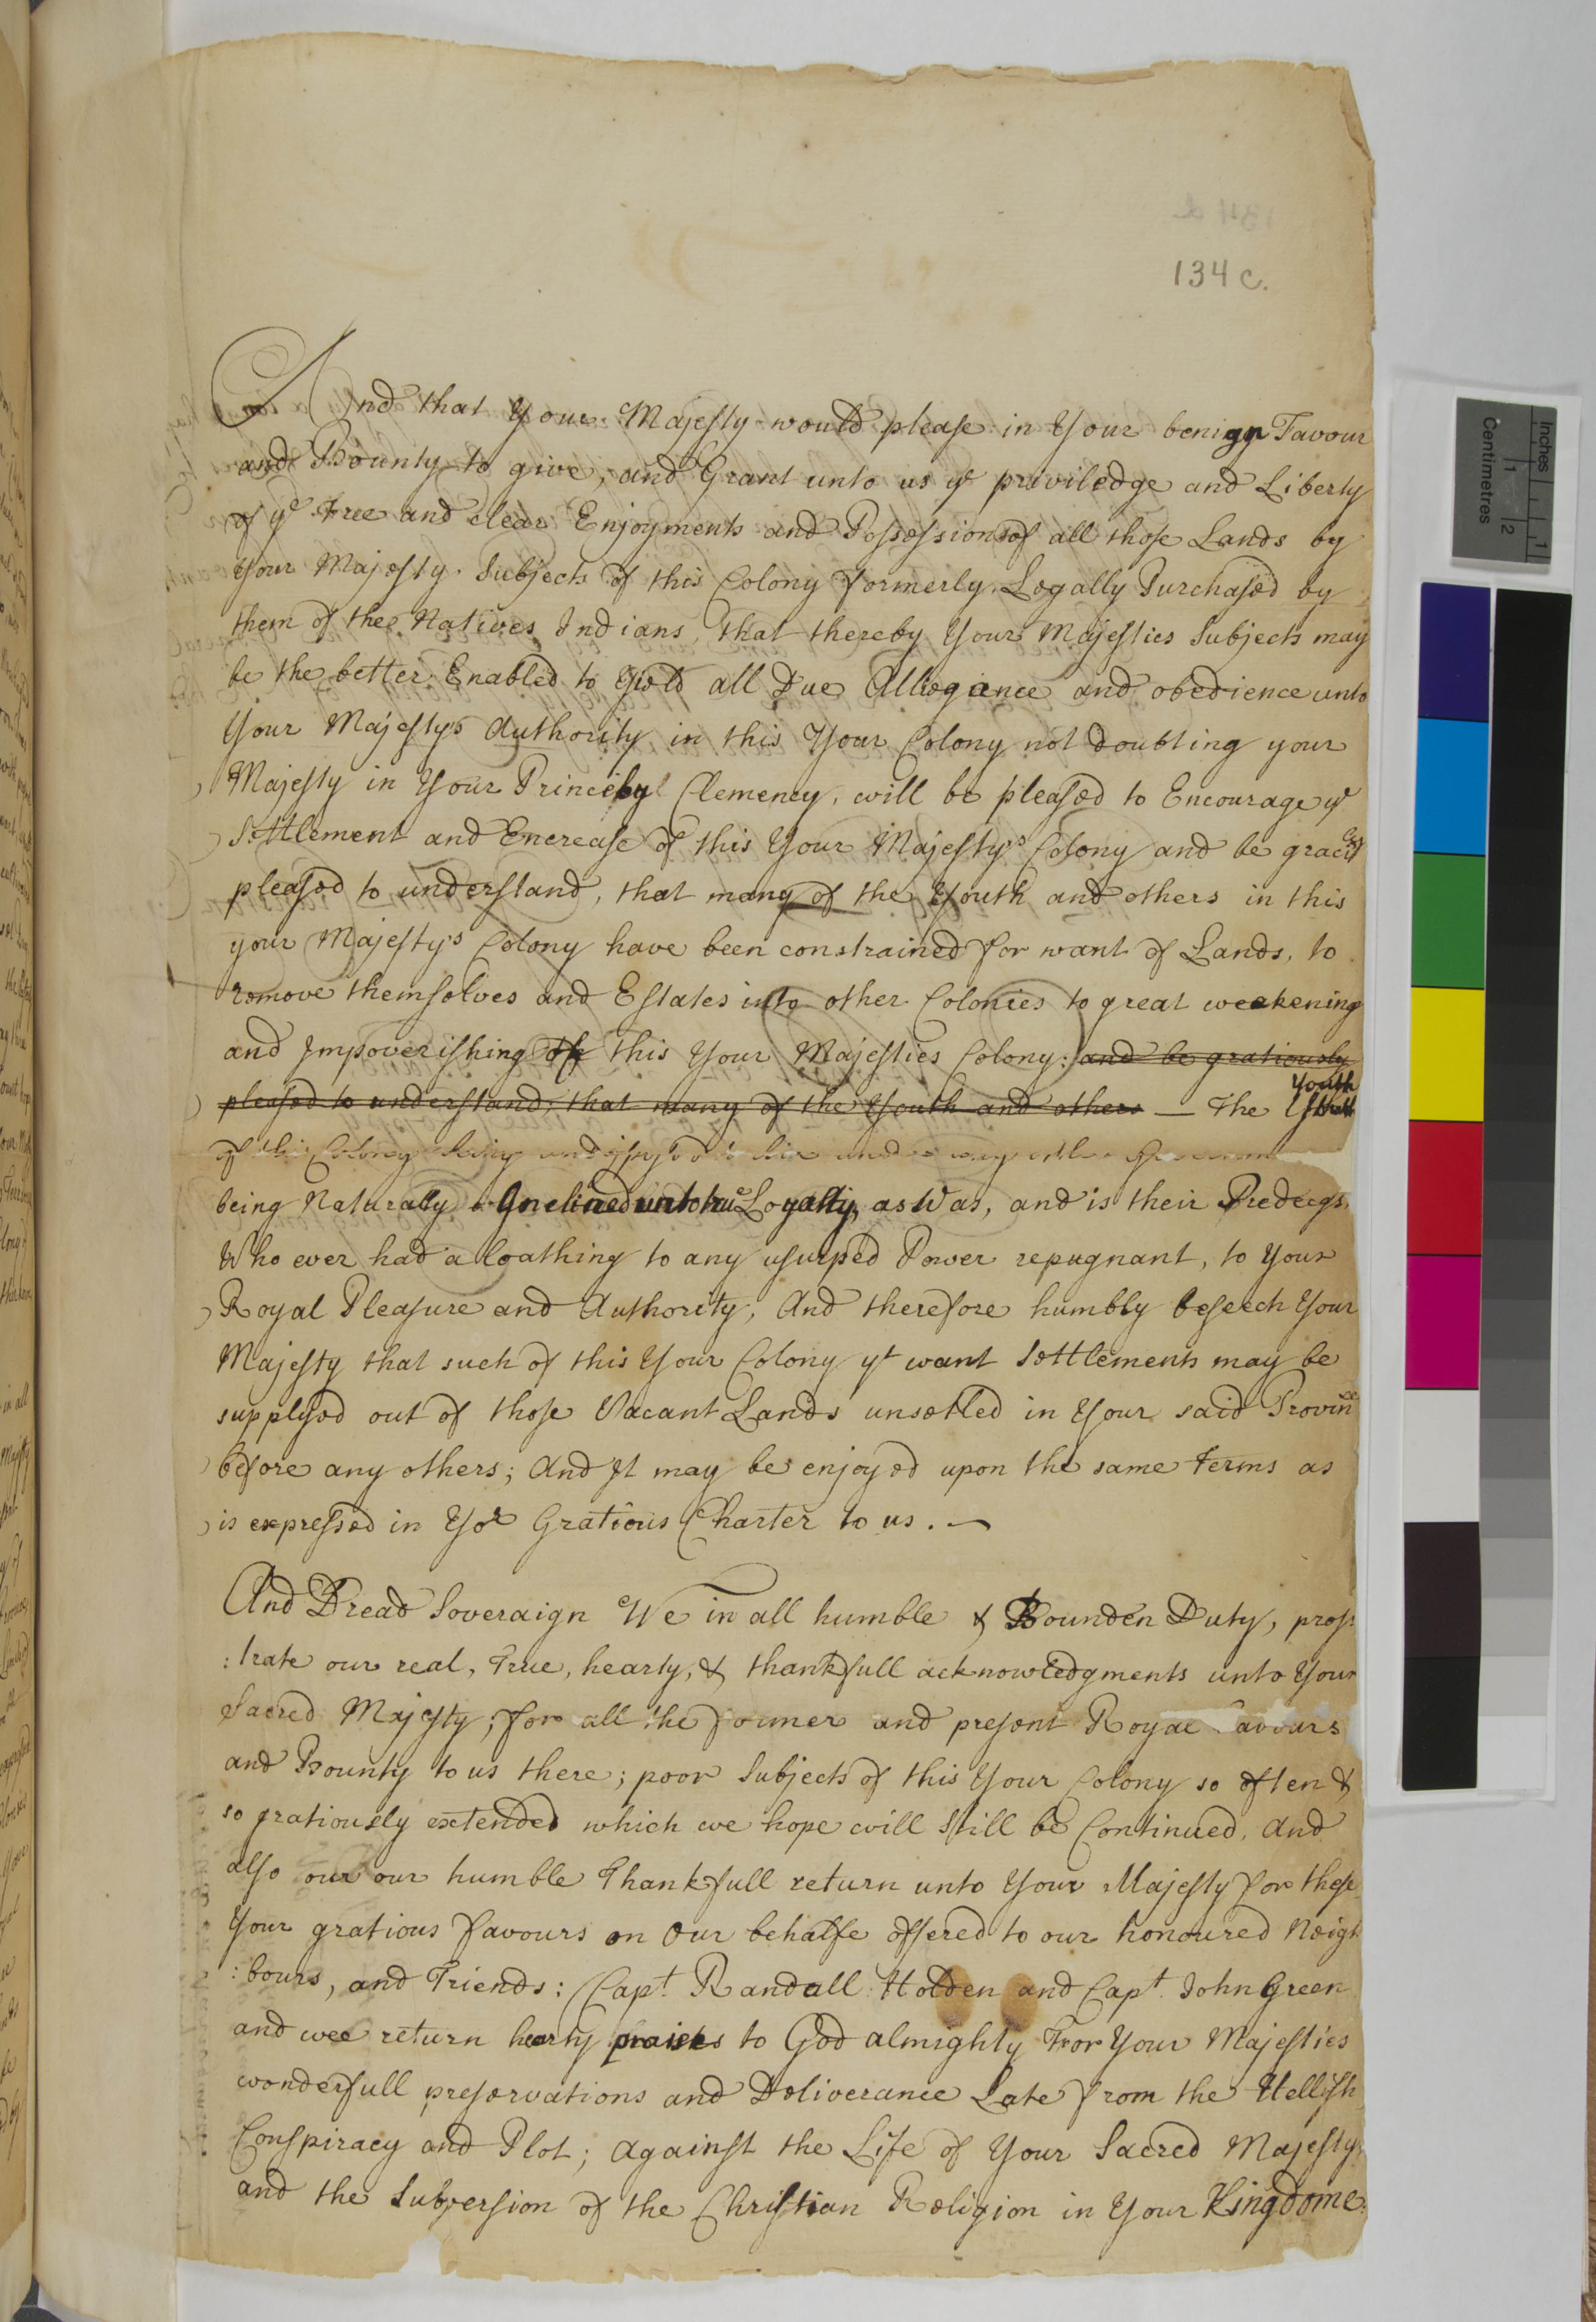 134 c.
And that Your Majesty would please in Your benign Favour
and Bounty to give, and Grant unto us ye priviledge and Liberty
of ye Free and clear Enjoyments and Possessions of all those Lands by
Your Majesty. Subjects of this Colony formerly Legally Purchased by
them of thee Natives Indians, that thereby Your Majesties Subjects may
be the better Enabled to Yield all Due Allegiance and obedience unto
Your Majestys Authority in this Your Colony not doubting your
Majesty in Your Princely Clemency, will be pleased to Encourage ye
Settlement and Encrease of this Your Majestys Colony and be
pleased to understand, that many of the Youth and others in this
your Majestys Colony have been constrained for want of Lands, to
remove themselves and Estates into other Colonies to great weekening
and Impoverishing of this Your Majesties Colony: and be gratiously
pleased to understand, that many of the Youth and others — The Youth
of this Colony being to live under any other
being Naturally Inclined unto true Loyalty, as Was, and is their
Who ever had a loathing to any usurped Power repugnant, to Your
Royal Pleasure and Authority, And therefore humbly beseech Your
Majesty that such of this Your Colony yt want Settlements may be
supplyed out of those Vacant Lands unsetled in Your said
before any others; And It may be enjoyed upon the same Terms as
is expressed in Yor Gratious Charter to us. —
And Dread Soveraign We in all humble & Bounden Duty, pros
:trate our real, True, hearty, & thankfull acknowledgments unto Your
Sacred Majesty; for all the former and present Royal Favours
and Bounty to us there; poor Subjects of this Your Colony so often &
so gratiously extended which we hope will Still be Continued, And
also our our humble Thankfull return unto Your Majesty for these
Your gratious favours on Our behalfe offered to our honoured Neigh
:bours, and Friends: Capt. Randall Holden and Capt. John Green
and wee return hearty praises to God almighty For Your Majesties
wonderfull preservations and Deliverance Late from the Hellish
Conspiracy and Plot; against the Life of Your Sacred Majesty
and the Subversion of the Christian Religion in Your Kingdome: